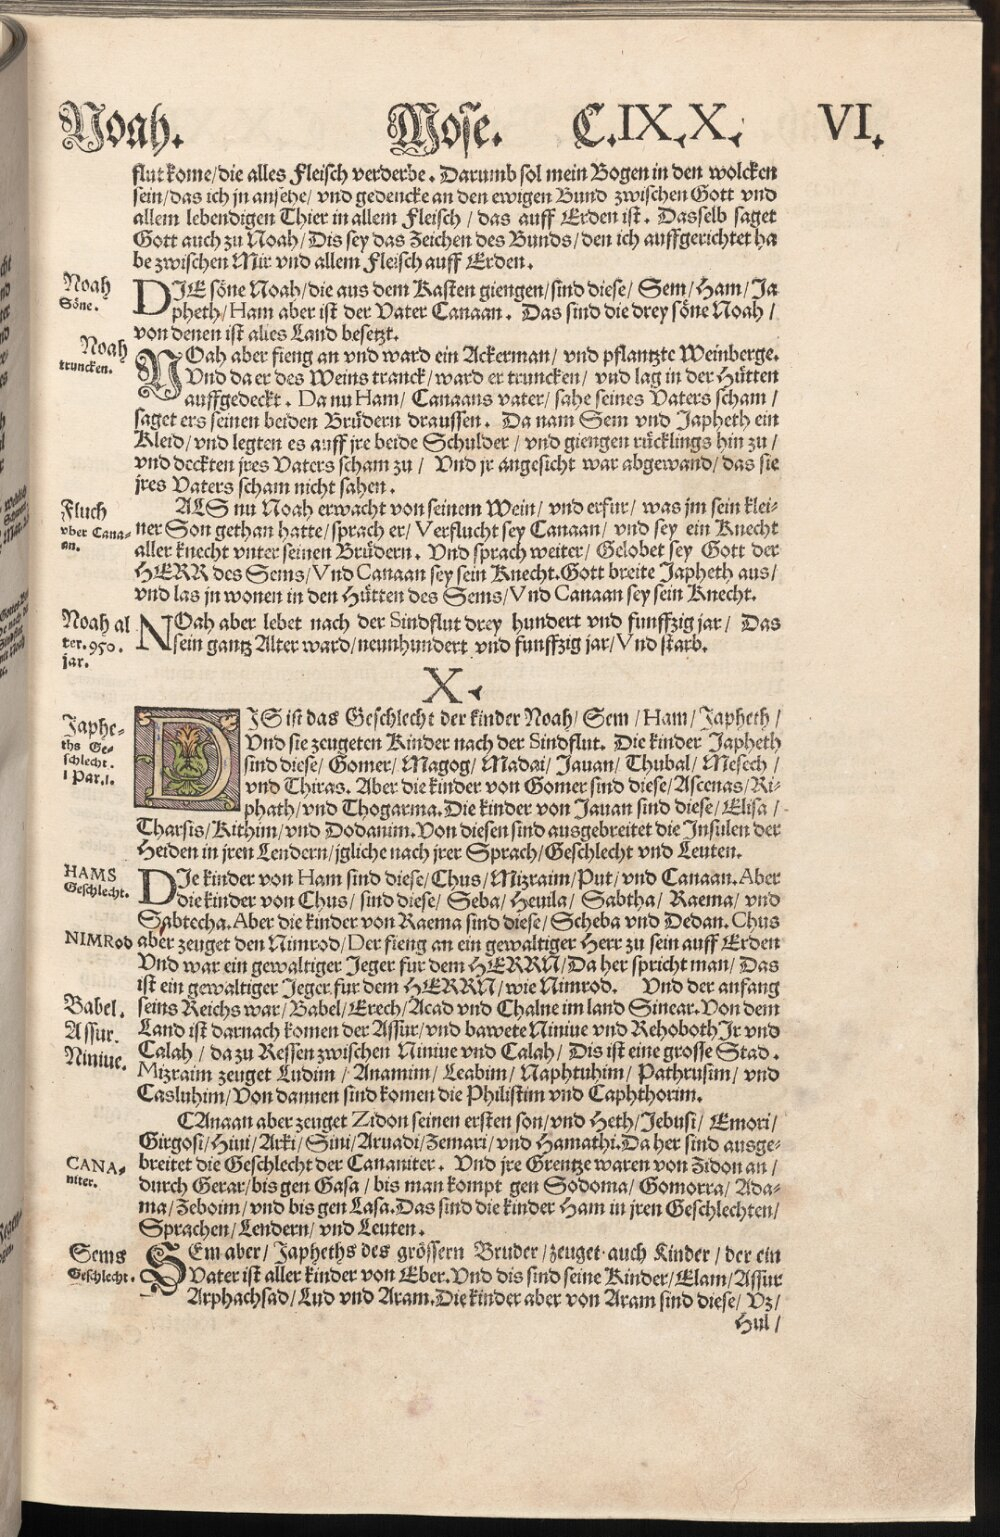 Noah. Mose. C.IX.X. VI.
flut kome/die alles Fleisch verderbe. Darumb sol mein Bogen in den wolcken
sein/das ich jn ansehe/ vnd gedencke an den ewigen Bund zwischen Gott vnd
allem lebendigen Thier in allem Fleisch / das auff Erden ist. Dasselb saget
Gott auch zu Noah/Dis sey das Zeichen des Bunds/den ich auffgerichtet ha
be zwischen Mir vnd allem Fleisch auff Erden.
Noah
Söne.
DIE söne Noah/die aus dem Kasten giengen/sind diese/ Sem/Ham/Ja
pheth/Ham aber ist der Vater Canaan. Das sind die drey söne Noah/
von denen ist alles Land besetzt.
Noah
truncken.
NOah aber fieng an vnd ward ein Ackerman/ vnd pflantzte Weinberge.
Vnd da er des Weins tranck/ward er truncken/ vnd lag in der Hütten
auffgedeckt. Da nu Ham/ Canaans vater/ sahe seines Vaters scham/
saget ers seinen beiden Brüdern draussen. Da nam Sem vnd Japheth ein
Kleid/vnd legten es auff jre beide Schulder / vnd giengen rücklings hin zu /
vnd deckten jres Vaters scham zu / Vnd jr angesicht war abgewand/das sie
jres Vaters scham nicht sahen.
Fluch
vber Cana-
an.
ALS nu Noah erwacht von seinem Wein/ vnd erfur/ was jm sein klei-
ner Son gethan hatte/sprach er/ Verflucht sey Canaan/ vnd sey ein Knecht
aller knecht vnter seinen Brüdern. Vnd sprach weiter/ Gelobet sey Gott der
HERR des Sems/Vnd Canaan sey sein Knecht.Gott breite Japheth aus/
vnd las jn wonen in den Hütten des Sems/Vnd Canaan sey sein Knecht.
Noah al
ter.950.
jar.
NOah aber lebet nach der Sindflut drey hundert vnd funffzig jar/ Das
sein gantz Alter ward/neunhundert vnd funffzig jar/Vnd starb.
X.
Japhe-
ths Ge-
schlecht.
1 Par.1.
DIS ist das Geschlecht der kinder Noah/ Sem/Ham/Japheth/
Vnd sie zeugeten Kinder nach der Sindflut. Die kinder Japheth
sind diese/ Gomer/ Magog/ Madai/ Jauan/ Thubal/ Mesech/
vnd Thiras. Aber die kinder von Gomer sind diese/Ascenas/Ri-
phath/vnd Thogarma.Die kinder von Jauan sind diese/ Elisa/
Tharsis/Kithim/vnd Dodanim.Von diesen sind ausgebreitet die Insulen der
Heiden in jren Lendern/jgliche nach jrer Sprach/Geschlecht vnd Leuten.
HAMS
Geschlecht.
DIe kinder von Ham sind diese/Chus/Mizraim/Put/vnd Canaan.Aber
die kinder von Chus/ sind diese/ Seba/ Heuila/ Sabtha/ Raema/ vnd
Sabtecha.Aber die kinder von Raema sind diese/ Scheba vnd Dedan.Chus
NIMRod
aber zeuget den Nimrod/Der fieng an ein gewaltiger Herr zu sein auff Erden
Vnd war ein gewaltiger Jeger fur dem HERRN/Da her spricht man/ Das
ist ein gewaltiger Jeger fur dem HERRN/wie Nimrod. Vnd der anfang
Babel.
seins Reichs war/Babel/Erech/Acad vnd Chalne im land Sinear.Von dem
Assur.
Land ist darnach komen der Assur/vnd bawete Niniue vnd Rehoboth Jr vnd
Niniue.
Calah / da zu Ressen zwischen Niniue vnd Calah / Dis ist eine grosse Stad.
Mizraim zeuget Ludim / Anamim/ Leabim/ Naphtuhim/ Pathrusim/ vnd
Casluhim/Von dannen sind komen die Philistim vnd Caphthorim.
CAnaan aber zeuget Zidon seinen ersten son/vnd Heth/Jebusi/ Emori/
Girgosi/Hiui/Arki/Sini/Aruadi/Zemari/vnd Hamathi.Da her sind ausge-
CANA-
niter.
breitet die Geschlecht der Cananiter. Vnd jre Grentze waren von Zidon an/
durch Gerar/bis gen Gasa / bis man kompt gen Sodoma/ Gomorra/ Ada-
ma/Zeboim/vnd bis gen Lasa.Das sind die kinder Ham in jren Geschlechten/
Sprachen/Lendern/ vnd Leuten.
Sems
Geschlecht.
SEm aber/ Japheths des grössern Bruder/zeuget auch Kinder/ der ein
Vater ist aller kinder von Eber.Vnd dis sind seine Kinder/Elam/Assur
Arphachsad/Lud vnd Aram.Die kinder aber von Aram sind diese/ Vz/
Hul/